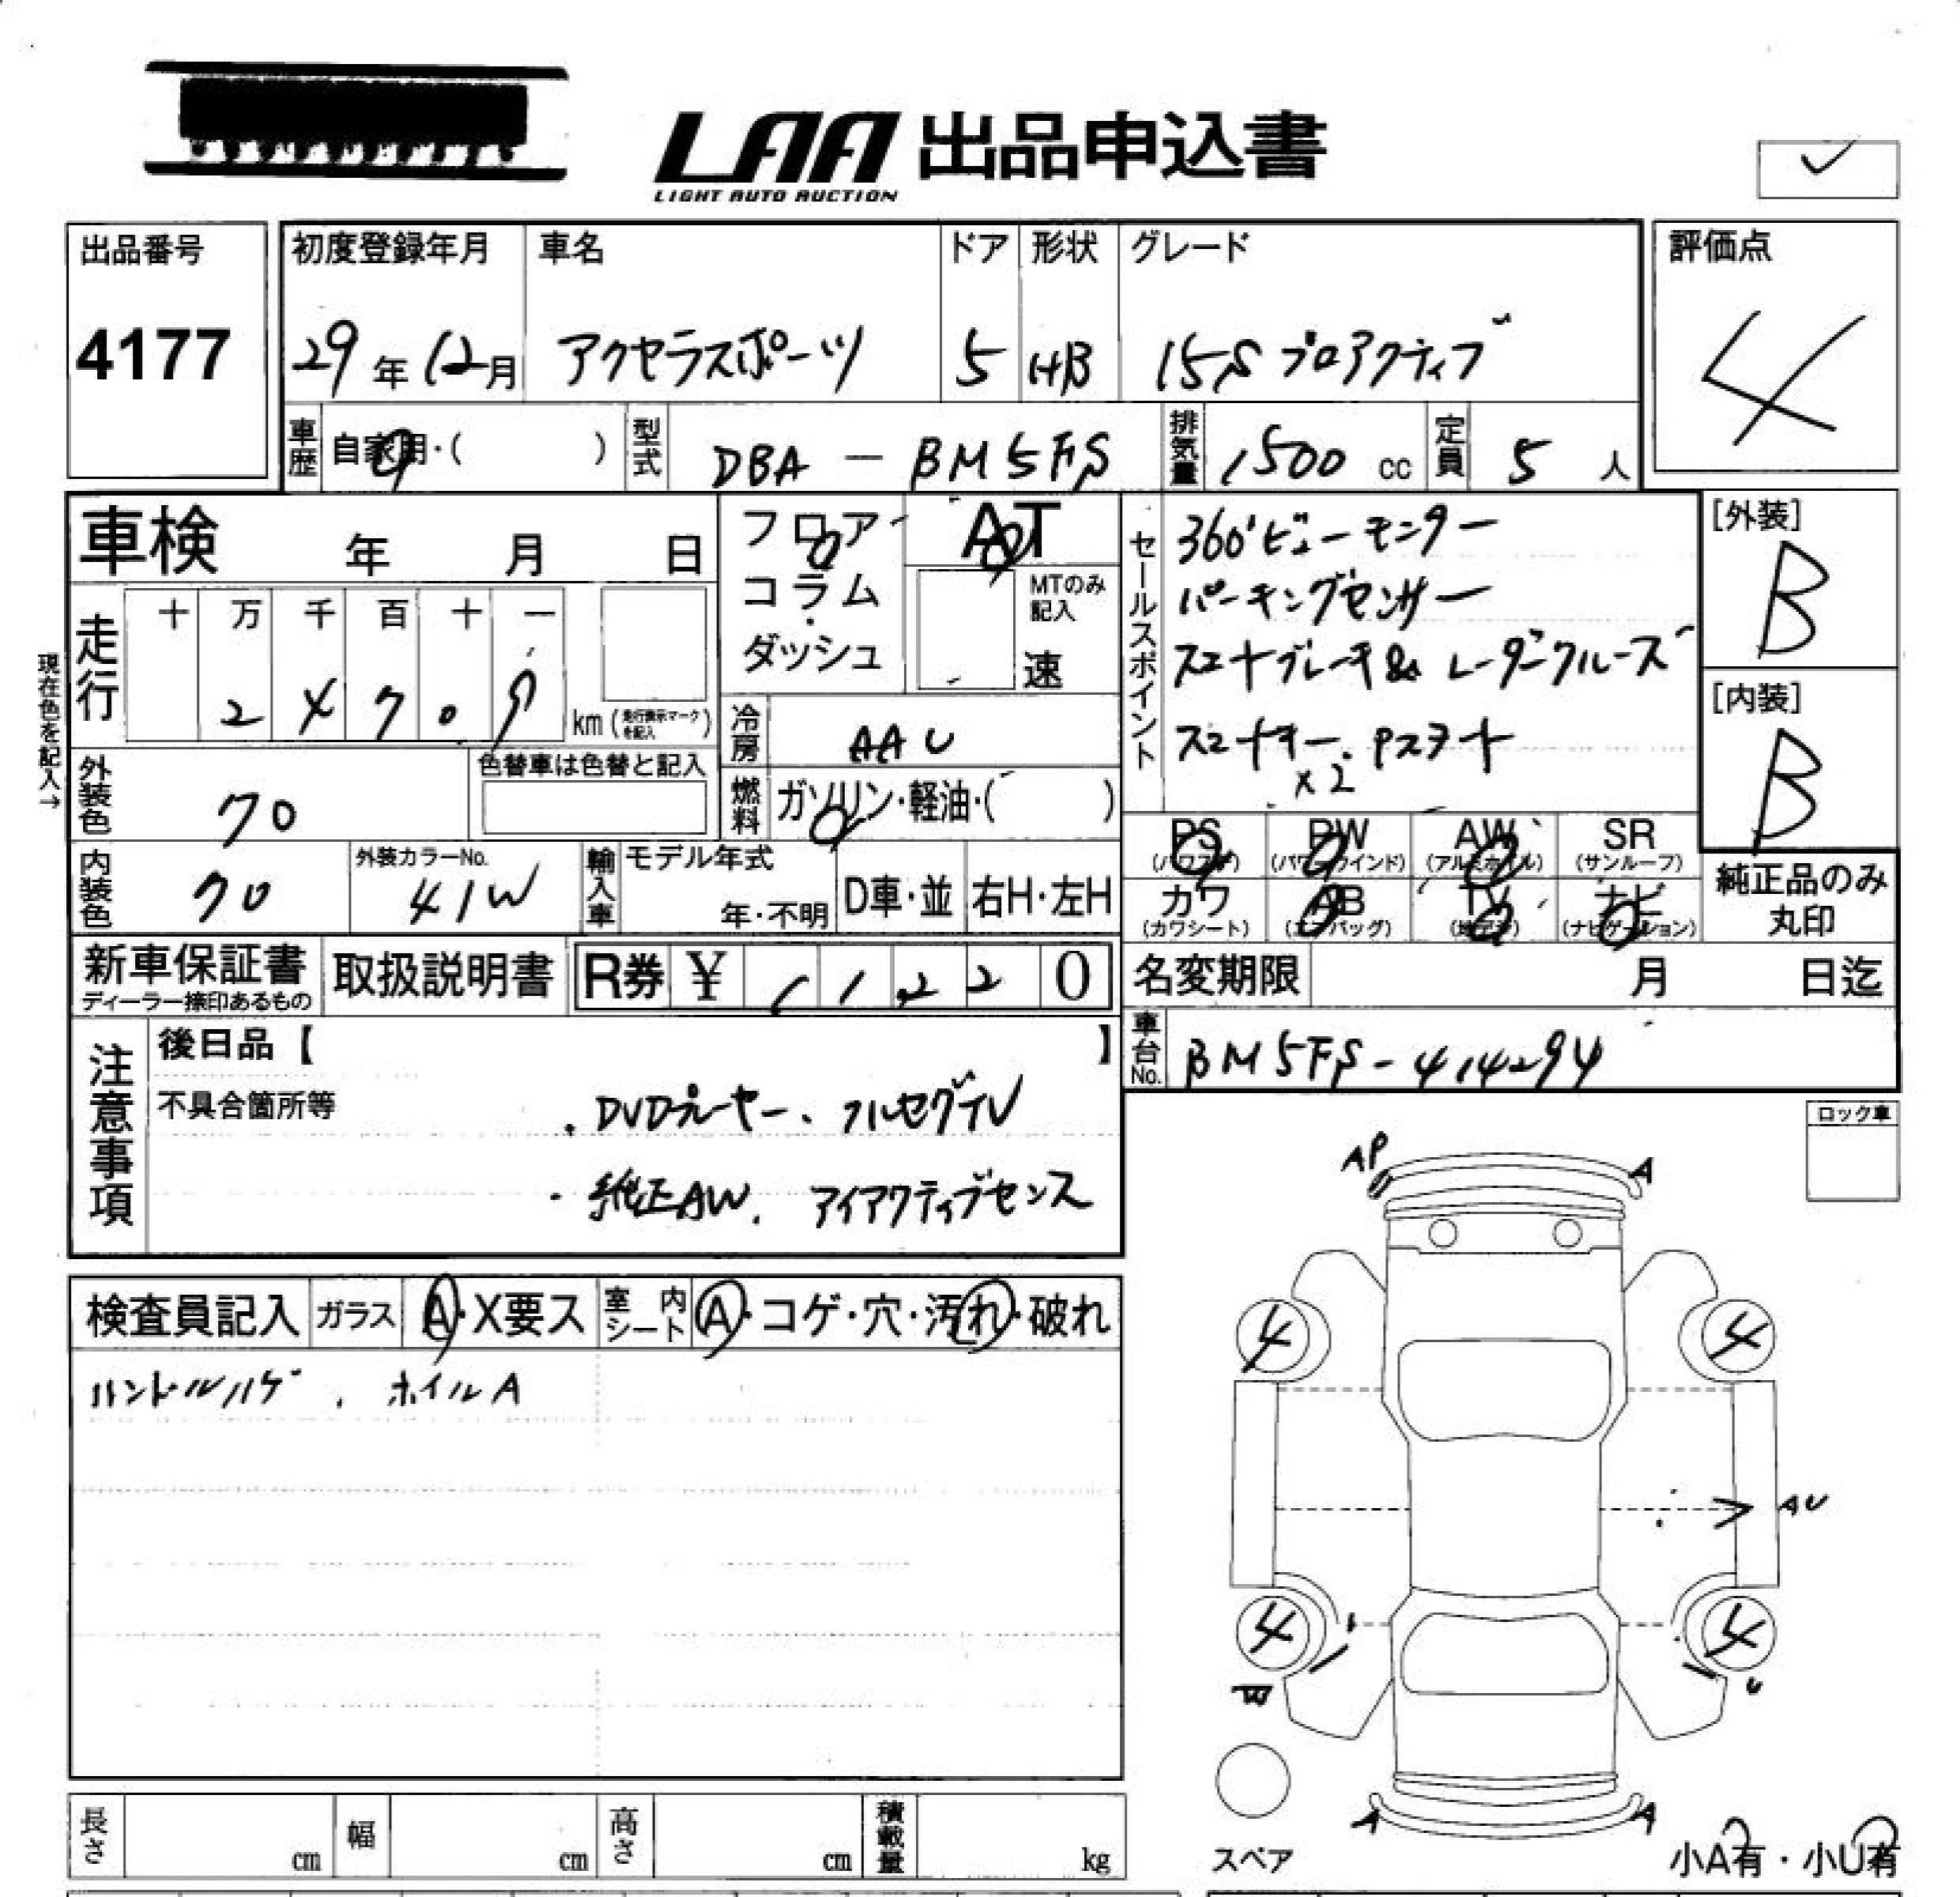 LAA 出品申込書
LIGHT AUTO AUCTION
出品番号
4177
初度登録年月
29年12月
車名
アクセラスポーツ
ドア
5
形状
HB
グレード
15S プロアクティブ
評価点
4
車歴
自家用・( )
型式
DBA-BM5FS
排気量
1500 cc
定員
5 人
車検 年 月 日
フロア
コラム
ダッシュ
AT
MTのみ記入
速
セールスポイント
360°ビューモニター
パーキングセンサー
スマートブレーキ& レーダークルーズ
スマートキー×2. Pスタート
[外装]
B
[内装]
B
現在色を記入→
走行
十 万 千 百 十 一
km (走行表示マークを記入)
冷房
AAC
外装色
クロ
色替車は色替と記入
燃料
ガソリン・軽油・( )
内装色
クロ
外装カラーNo.
41W
輸入車
モデル年式
年・不明
D車・並
右H・左H
PS (パワステ)
PW (パワーウインド)
AW (アルミホイル)
SR (サンルーフ)
カワ (カワシート)
AB (エアバッグ)
TV (地デジ)
ナビ (ナビゲーション)
純正品のみ
丸印
新車保証書
ディーラー捺印あるもの
取扱説明書
R券 ¥ 11,220
名変期限 月 日迄
車台No.
BM5FS-414294
注意事項
後日品【 】
不具合箇所等
・DVDプレーヤー、フルセグTV
・純正AW、アイアクティブセンス
ロック車
AP
A
検査員記入
ガラス A・X要ス
室内シート A・コゲ・穴・汚れ・破れ
ハンドルハゲ、ホイルA
4
4
AU
4
4
W
U
A
A
スペア
小A有・小U有
長さ cm
幅 cm
高さ cm
積載量 kg